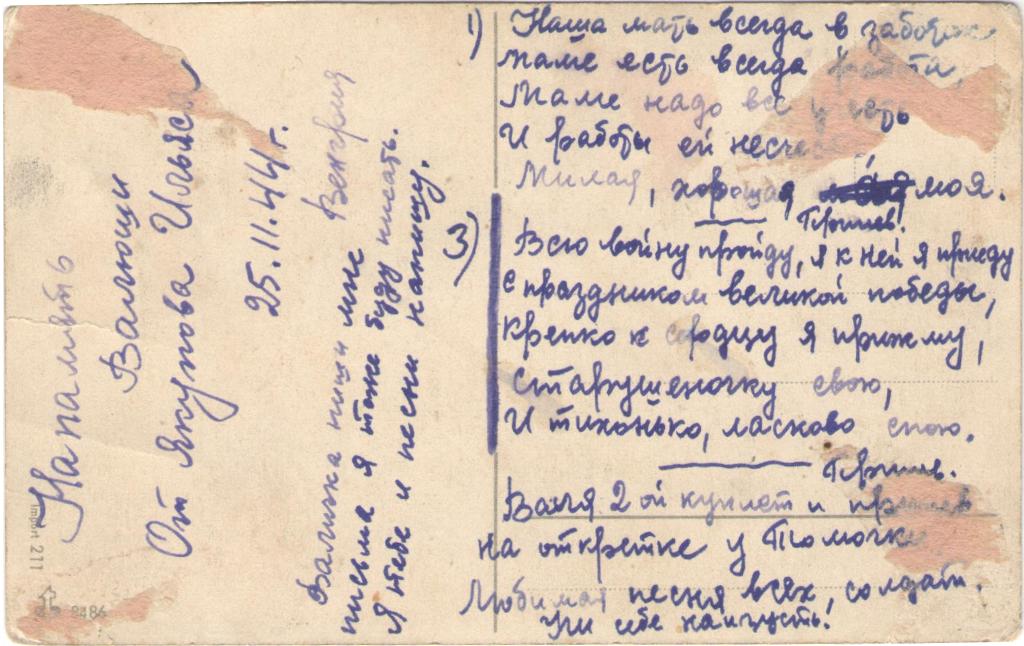 На память
Валюши
От Якупова Ильяса
25.11.44 г.
Венгрия
Валичка пиши мне
письма я тоже буду писать.
Я тебе и песни напишу.
1) Наша мать всегда в заботах
маме есть всегда работа,
Маме надо все
И работы ей
Милая, хорошая моя.
Припев.
3) Всю войну пройду, я к ней я приеду
с праздником великой победы,
крепко к сердцу я прижму,
старушеночку свою,
И тихонько, ласково спою.
Припев.
Валя 2ой куплет и припев
на откретке у Томочки
Любимая песня всех, солдат.
Учи себе наизусть.
Import 211
2486